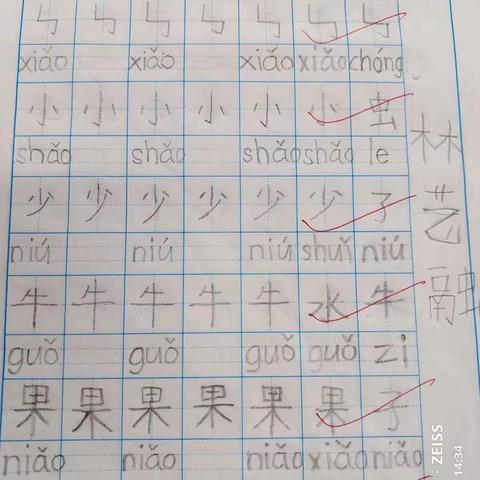 xiǎo xiǎo xiǎo xiǎo chóng
小 小 小 小 小 小 虫
shǎo shǎo shǎo shǎo le
少 少 少 少 少 少 了
niú niú niú shuǐ niú
牛 牛 牛 牛 牛 水 牛
guǒ guǒ guǒ guǒ zi
果 果 果 果 果 果 子
niǎo niǎo niǎo xiǎo niǎo
林艺融
ZEISS
14:34